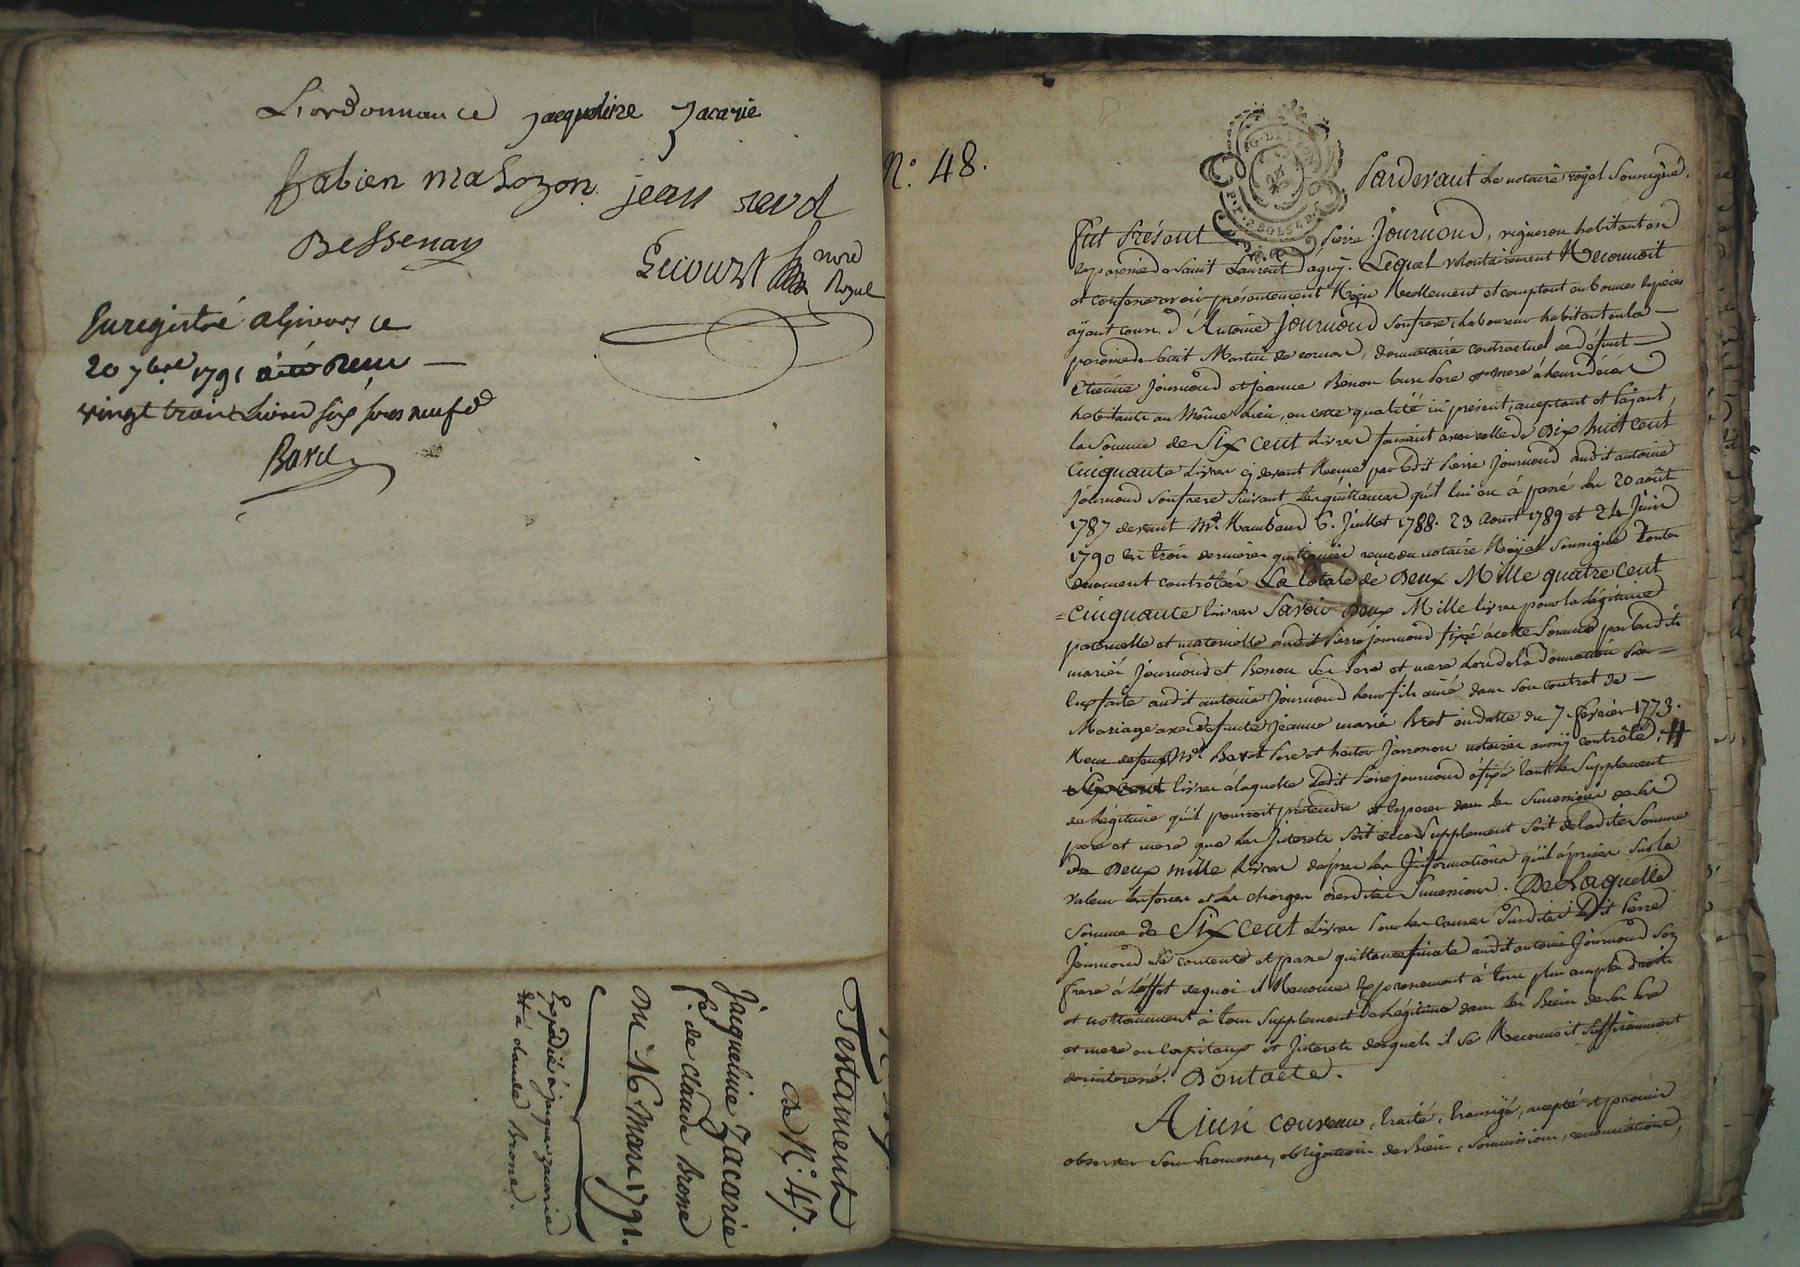 L'ordonnance jacqueline zacarie
fabien mahozon jean
Bessenay
notre
Royal
Enregistré a Givors ce
20 7bre 1791
vingt trois Livres six sous neuf d
N.° 48.
G. DE LYON
Pardevant le notaire royal soussigné.
fut Présent Pierre Journoud, vigneron habitant en
la paroisse de Saint Laurent d'agny. Lequel volontairement Reconnoit
et confesse avoir présentement Reçu Reellement et comptant en bonnes espèces
ayant cours d'Antoine Journoud son frere laboureur habitant en la
paroisse de Saint Martin de cornas, donnataire contractuel de défunt
Etienne Journoud et jeanne Benon leurs Pere et mere à leurs décès
habitants au Même Lieu, en cette qualité ici présent, acceptant et Payant,
la Somme de Six cent Livres faisant avec celle de Dix huit cent
Cinquante Livres cy devant Reçue par ledit Pierre Journoud dudit antoine
Journoud son frere suivant les quittances qu'il lui en à passé les 20 août
1787 devant M.e 6. Juillet 1788. 23 Aoust 1789 et 24 Juin
1790 les trois dernières reçues du notaire Royal soussigné toutes
duement contrôlées La totale de Deux Mille quatre cent
Cinquante livres Savoir Deux Mille livres pour la légitime
paternelle et maternelle dudit Pierre journoud fixé à cette Somme par lesdits
mariés Journoud et Benon ses Pere et mere Lors de la Donnation Par
Eux faite audit antoine Journoud leur fils ainé dans son contrat de
Mariage avec defunte Jeanne marie Bret en datte du 7. fevrier 1773.
Reçu de feux M.es Pere et notaires contrôlé, #
Six cent livres à laquelle Ledit Pierre journoud à fixé tant le Supplement
de Légitime qu'il pourroit prétendre et Esperer dans les Successions de ses
pere et mere que les Interets soit de ce Supplement soit de ladite Somme
de Deux mille Livres dapres les Informations qu'il à prises sur la
valeur les forces et les charges desdites Successions. De Laquelle
Somme de Six cent Livres Pour les causes Susdites Ledit Pierre
Journoud se contente et passe quittance finale audit antoine Journoud son
frere à L'effet de quoi il Renonce Expressement à tous plus amples droits
et nottamment à tout Supplement de Légitime dans les Biens de ses Pere
et mere en Capitaux et Interets desquels il se Reconnoit suffisamment
desinteressé. Dont acte.
Ainsi convenu, traité, transigé, accepté et promis
observer sous Promesses, obligations de Biens, soumissions, renonciations,
Testament
de N.° 47.
Jacqueline Zacarie
f.e de claude Brosse
Du 16 Mars 1791.
Expedié à jacques zacarie
et à claude Brosse.